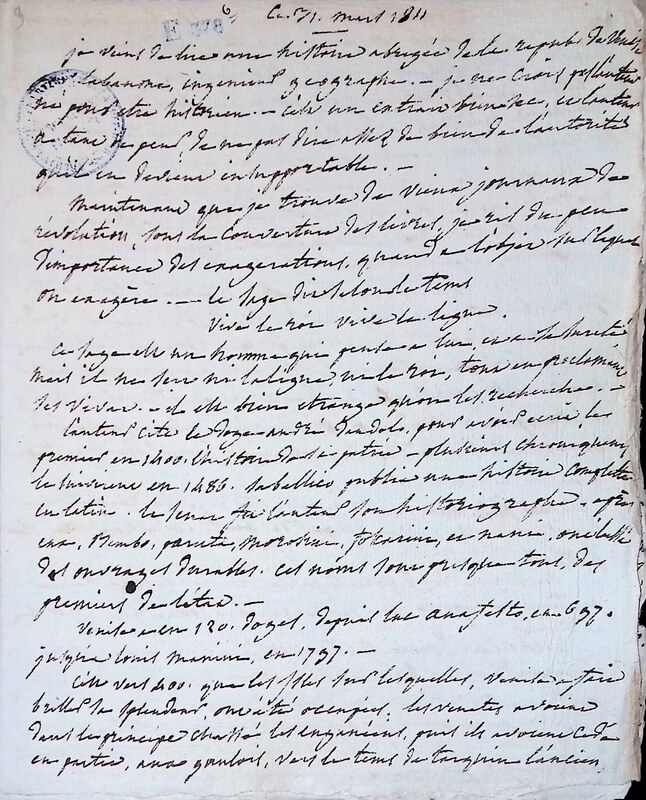 9
6
E 378
Ce 31. mars 1811
je viens de lire une histoire abrégée de la repub. de Venise
labaume, ingenieur geographe. – je ne crois pas l'auteur
né pour être historien. – c'est un extrait bien sec, et l'auteur
a tant de peur de ne pas dire assez de bien de l'autorité
qu'il en devient insupportable. –
Maintenant que je trouve de vieux journaux de
révolution, sous la couverture des livres, je ris du peu
d'importance des exagerations, quand à l'objet sur lequel
on exagère. – – le sage dit selon le tems
Vive le roi vive la ligue.
Ce sage est un homme qui pense à lui, et à sa sureté
mais il ne sert ni la ligue, ni le roi, tout en proclamant
les vivat. – il est bien etrange qu'on les recherche. –
l'auteur cite le doge andré dandolo, pour avoir ecrit le
premier en 1400. l'histoire de sa patrie – plusieurs chroniqueurs
le suivirent en 1486. sabellico publia une histoire complette
en latin. le senat fit l'auteur son historiographe. après
eux, Bembo, paruta, morosini, foscarini, et nani, ont laissé
des ouvrages durables. ces noms sont presque tous, des
premiers de l'etat. –
Venise a eu 120. doges, depuis luc anafesto, en 697.
jusqu'à louis manini, en 1797. –
C'est vers 400. que les isles sur lesquelles, Venise a fait
briller sa splendeur, ont été occupées. les venetes avoient
dans le principe chassé les euganéens, puis ils avoient cédé
en partie, aux gaulois, vers le tems de tarquin l'ancien,